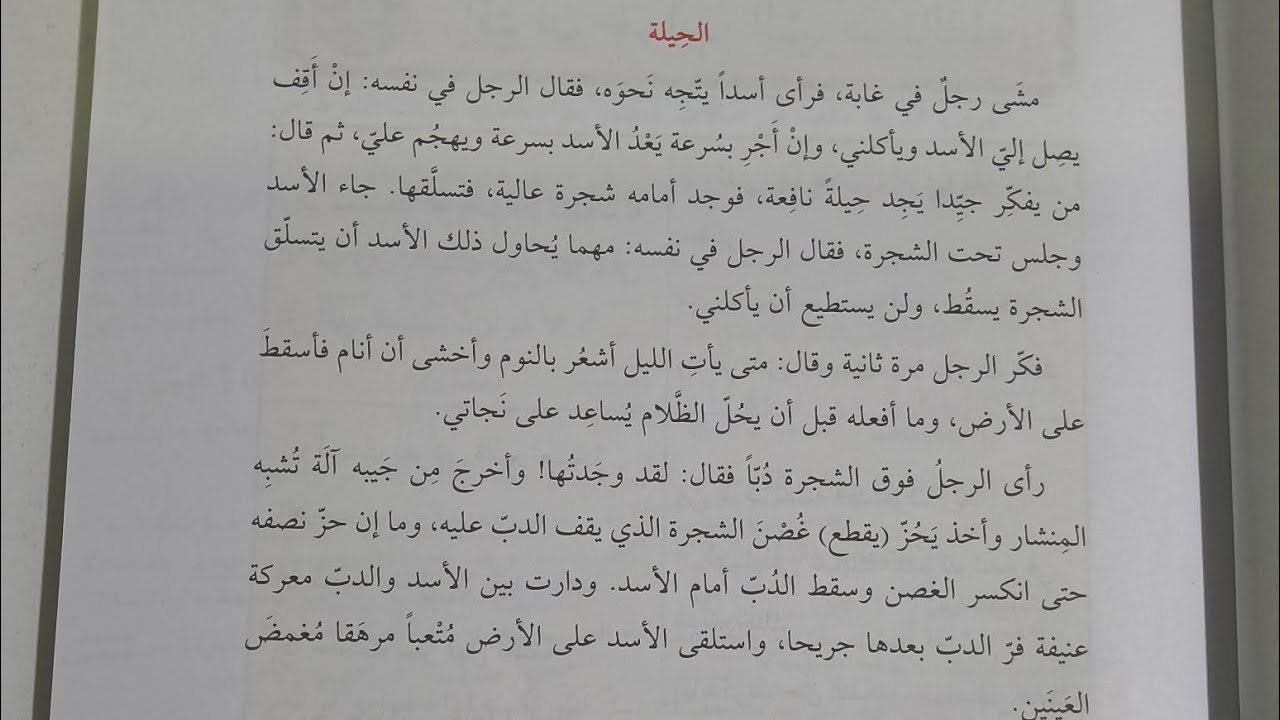 الحِيلة
مشَى رجلٌ في غابة، فرأى أسداً يتّجِه نَحوَه، فقال الرجل في نفسه: إنْ أَقِف
يصِل إليّ الأسد ويأكلني، وإنْ أَجْرِ بسُرعة يَعْدُ الأسد بسرعة ويهجُم عليّ، ثم قال:
من يفكِّر جيِّدا يَجِد حِيلةً نافِعة، فوجد أمامه شجرة عالية، فتسلَّقها. جاء الأسد
وجلس تحت الشجرة، فقال الرجل في نفسه: مهما يُحاول ذلك الأسد أن يتسلّق
الشجرة يسقُط، ولن يستطيع أن يأكلني.
فكّر الرجل مرة ثانية وقال: متى يأتِ الليل أشعُر بالنوم وأخشى أن أنام فأسقطَ
على الأرض، وما أفعله قبل أن يحُلّ الظَّلام يُساعِد على نَجاتي.
رأى الرجلُ فوق الشجرة دُبّاً فقال: لقد وجَدتُها! وأخرجَ مِن جَيبه آلَة تُشبِه
المِنشار وأخذ يَحُزّ (يقطع) غُصْنَ الشجرة الذي يقف الدبّ عليه، وما إن حزّ نصفه
حتى انكسر الغصن وسقط الدُبّ أمام الأسد. ودارت بين الأسد والدبّ معركة
عنيفة فرّ الدبّ بعدها جريحا، واستلقى الأسد على الأرض مُتْعباً مرهَقا مُغمضَ
العَينَين.